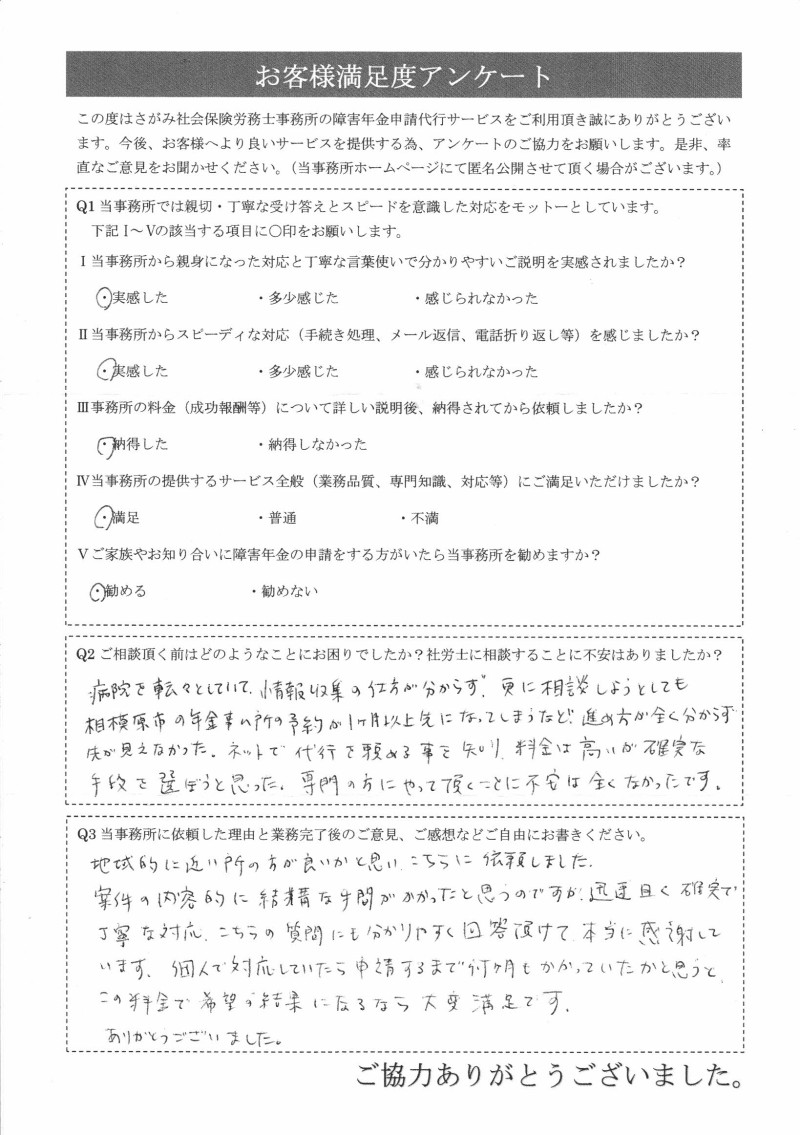 お客様満足度アンケート
この度はさがみ社会保険労務士事務所の障害年金申請代行サービスをご利用頂き誠にありがとうござい
ます。今後、お客様へより良いサービスを提供する為、アンケートのご協力をお願いします。是非、率
直なご意見をお聞かせください。（当事務所ホームページにて匿名公開させて頂く場合がございます。）
Q1 当事務所では親切・丁寧な受け答えとスピードを意識した対応をモットーとしています。
下記Ⅰ～Ⅴの該当する項目に〇印をお願いします。
Ⅰ当事務所から親身になった対応と丁寧な言葉使いで分かりやすいご説明を実感されましたか？
・実感した ・多少感じた ・感じられなかった
Ⅱ当事務所からスピーディな対応（手続き処理、メール返信、電話折り返し等）を感じましたか？
・実感した ・多少感じた ・感じられなかった
Ⅲ事務所の料金（成功報酬等）について詳しい説明後、納得されてから依頼しましたか？
・納得した ・納得しなかった
Ⅳ当事務所の提供するサービス全般（業務品質、専門知識、対応等）にご満足いただけましたか？
・満足 ・普通 ・不満
Ⅴご家族やお知り合いに障害年金の申請をする方がいたら当事務所を勧めますか？
・勧める ・勧めない
Q2 ご相談頂く前はどのようなことにお困りでしたか？社労士に相談することに不安はありましたか？
病院を転々としていて、情報収集の仕方が分からず、更に相談しようとしても
相模原市の年金事ム所の予約が1ヶ月以上先になってしまうなど、進め方が全く分からず
先が見えなかった。ネットで代行を頼める事を知り、料金は高いが確実な
手段を選ぼうと思った。専門の方にやって頂くことに不安は全くなかったです。
Q3 当事務所に依頼した理由と業務完了後のご意見、ご感想などご自由にお書きください。
地域的に近い所の方が良いかと思い、こちらに依頼しました。
案件の内容的に結構な手間がかかったと思うのですが、迅速且く確実で
丁寧な対応、こちらの質問にも分かりやすく回答頂けて、本当に感謝して
います。個人で対応していたら申請するまで何ヶ月もかかっていたかと思うと、
この料金で希望の結果になるなら大変満足です。
ありがとうございました。
ご協力ありがとうございました。